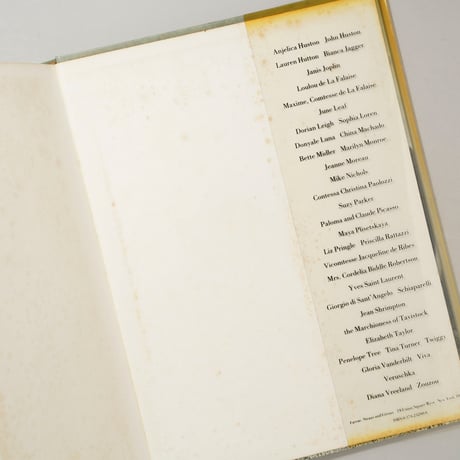 Anjelica Huston John Huston
Lauren Hutton Bianca Jagger
Janis Joplin
Loulou de La Falaise
Maxime, Comtesse de La Falaise
June Leaf
Dorian Leigh Sophia Loren
Donyale Luna China Machado
Bette Midler Marilyn Monroe
Jeanne Moreau
Mike Nichols
Contessa Christina Paolozzi
Suzy Parker
Paloma and Claude Picasso
Maya Plisetskaya
Liz Pringle Priscilla Rattazzi
Vicomtesse Jacqueline de Ribes
Mrs. Cordelia Biddle Robertson
Yves Saint Laurent
Giorgio di Sant'Angelo Schiaparelli
Jean Shrimpton
the Marchioness of Tavistock
Elizabeth Taylor
Penelope Tree Tina Turner Twiggy
Gloria Vanderbilt Viva
Veruschka
Diana Vreeland Zouzou
Farrar, Straus and Giroux 19 Union Square West, New York